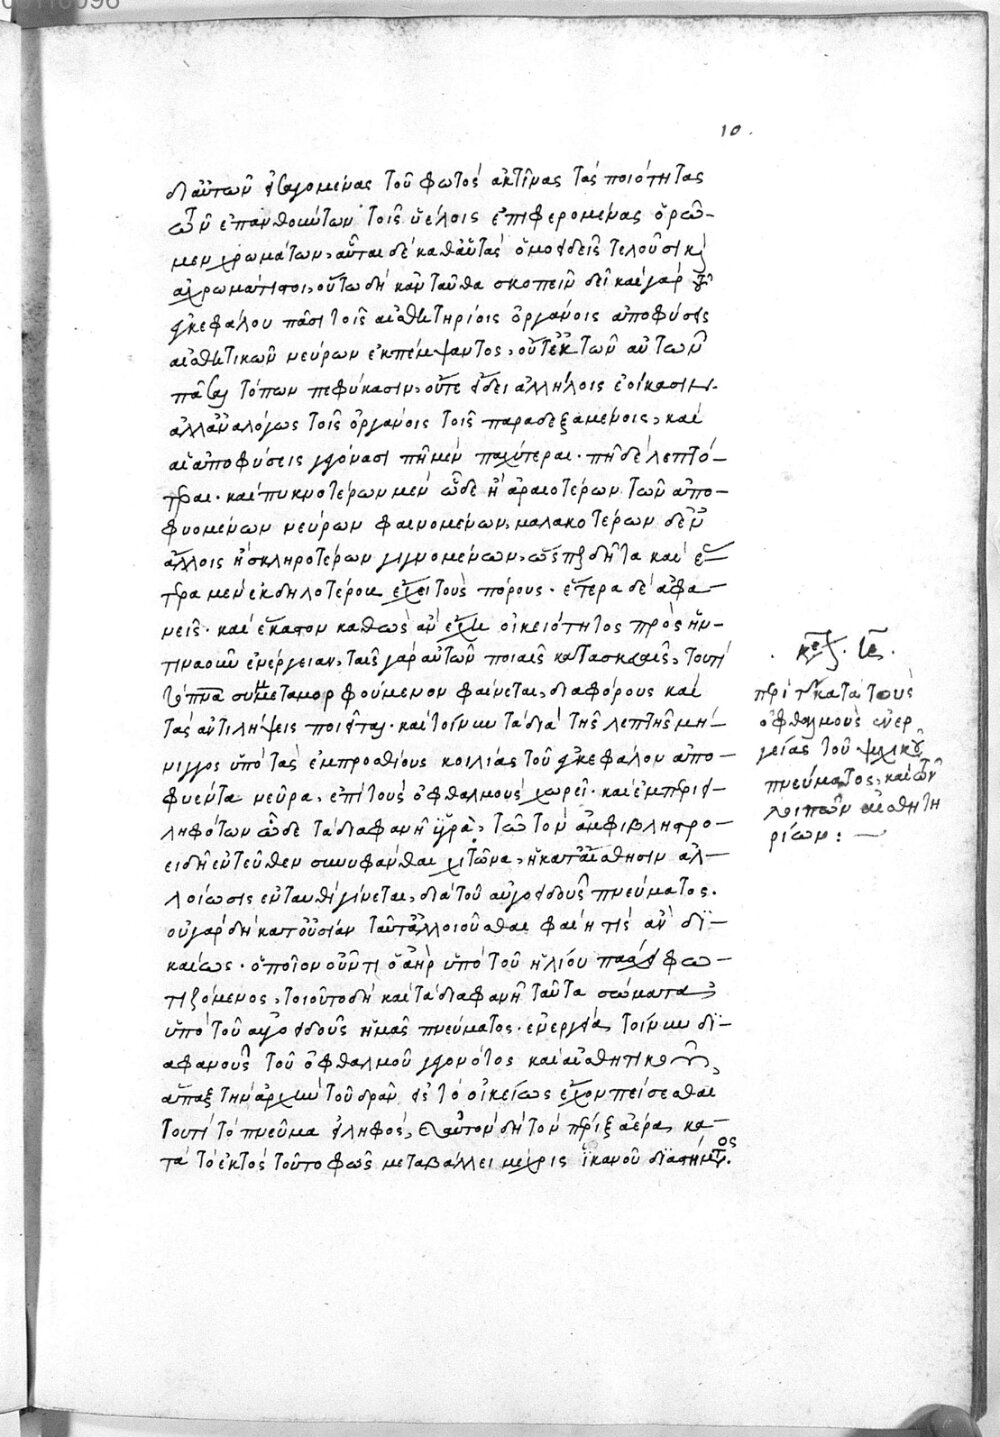 10.
δι αὐτῶν εἰσαγομένας τοῦ φωτὸς ἀκτῖνας τὰς ποιότητας
ὧν ἐπανθούντων τοῖς ὑέλοις ἐπιφερομένας ὁρῶ-
μεν χρωμάτων, αὗται δὲ καθ' αὑτὰς ὁμοειδεῖς τελοῦσι καὶ
ἀχρωμάτιστοι, οὕτω δὴ κἀνταῦθα σκοπεῖν δεῖ καὶ γὰρ τοῦ
ἐγκεφάλου πᾶσι τοῖς αἰσθητηρίοις ὀργάνοις ἀποφύσεις
αἰσθητικῶν νεύρων ἐκπέμψαντος, οὔτ' ἐκ τῶν αὐτῶν
πᾶσαι τόπων πεφύκασιν, οὔτε εἴδει ἀλλήλοις ἐοίκασιν.
ἀλλ' ἀναλόγως τοῖς ὀργάνοις τοῖς παραδεξαμένοις, καὶ
αἱ ἀποφύσεις γεγόνασι πῆ μὲν παχύτεραι. πῆ δὲ λεπτό-
τεραι. καὶ πυκνοτέρων μὲν ὧδε ἢ ἀραιοτέρων τῶν ἀπο-
φυομένων νεύρων φαινομένων, μαλακοτέρων δ' ἐν
ἄλλοις ἢ σκληροτέρων γιγνομένων, ὥσπερ δῆτα καὶ ἕ-
τερα μὲν ἐκδηλοτέρους ἔχει τοὺς πόρους. ἕτερα δὲ ἀφα-
νεῖς. καὶ ἕκαστον καθὼς ἂν ἔχοι οἰκειότητος πρὸς ἥν-
τινα οὖν ἐνέργειαν, ταῖς γὰρ αὐτῶν ποιαῖς κατασκευαῖς, τουτὶ
τὸ πνα συμμεταμορφούμενον φαίνεται, διαφόρους καὶ
τὰς ἀντιλήψεις ποιεῖται. καὶ τοίνυν τὰ διὰ τῆς λεπτῆς μή-
νιγγος ὑπὸ τὰς ἐμπροσθίους κοιλίας τοῦ ἐγκεφάλου ἀπο-
φυέντα νεῦρα, ἐπὶ τοὺς ὀφθαλμοὺς χωρεῖ. καὶ ἐμπεριει-
ληφότων ὧδε τὰ διαφανῆ ὑγρὰ, τῶ τὸν ἀμφιβληστρο-
ειδῆ ἐντεῦθεν συνυφάνθαι χιτῶνα, ἡ κατ' αἴσθησιν ἀλ-
λοίωσις ἐνταυθὶ γίνεται, διὰ τοῦ αὐγοειδοῦς πνεύματος.
οὐ γὰρ δὴ κατ' οὐσίαν ταῦτ' ἀλλοιοῦσθαι φαίη τὶς ἂν δι-
καίως. ὁποῖον οὖν τι ὁ ἀὴρ ὑπὸ τοῦ ἡλίου πάσχει φω-
τιζόμενος, τοιοῦτο δὴ καὶ τὰ διαφανῆ ταῦτα σώματα
ὑπὸ τοῦ αὐγοειδοῦς ἡμᾶς πνεύματος. ἐνεργείᾳ τοίνυν δι-
αφανοῦς τοῦ ὀφθαλμοῦ γεγονότος καὶ αἰσθητικοῦ,
ἅπαξ τὴν ἀρχὴν τοῦ δρᾶν εἰς τὸ οἰκείως ἔχον πείσεσθαι
τουτὶ τὸ πνεῦμα εἰληφὸς, εἰς αὐτὸν δὴ τὸν πέριξ ἀέρα, κα-
τὰ τὸ ἐκτὸς τοῦτο φῶς μεταβάλλει μέχρις ἱκανοῦ διαστήματος.
κεφ. ιε.
περὶ τῆς κατὰ τοὺς
ὀφθαλμοὺς ἐνερ
γείας τοῦ ψυχικοῦ
πνεύματος, καὶ τῶν
λοιπῶν αἰσθητη
ρίων: